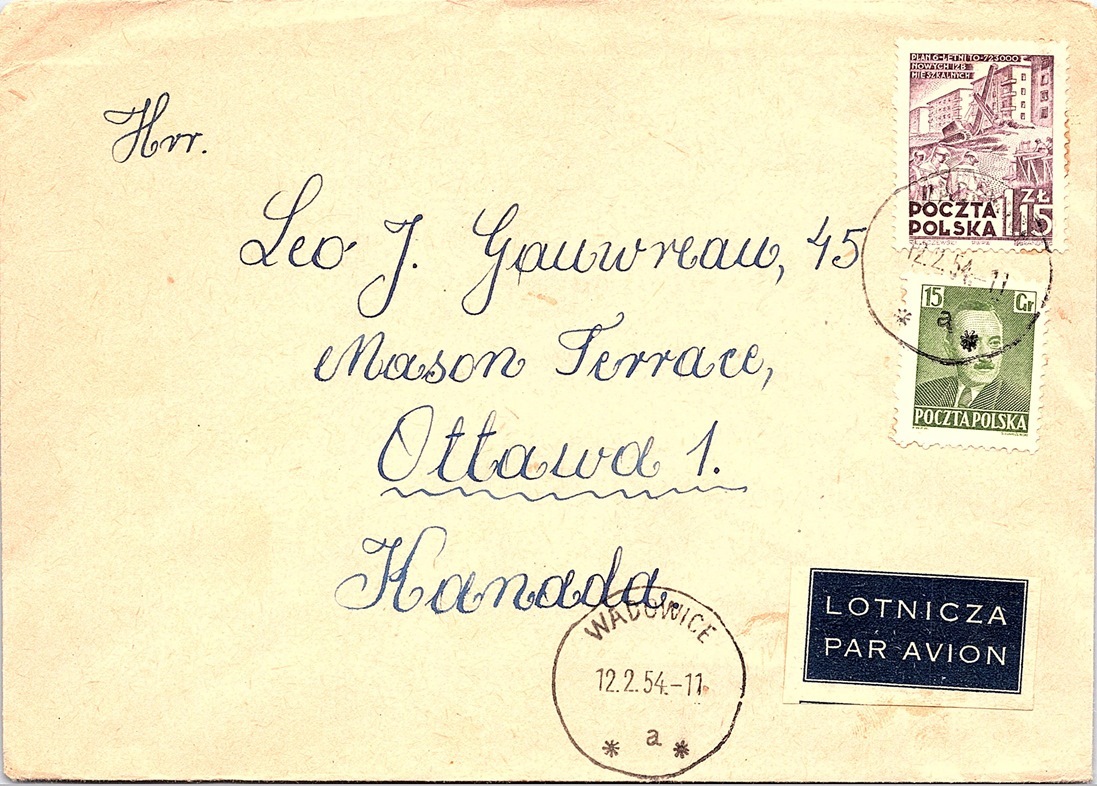 Hrr.
Leo J. Gauwreau, 45
Mason Terrace,
Ottawa 1.
Kanada.
PLAN 6-LETNI TO-723000
NOWYCH IZB
MIESZKALNYCH
POCZTA
POLSKA
1,15 ZŁ
12.2.54.-11
a
15 Gr
POCZTA POLSKA
WADOWICE
12.2.54.-11
a
LOTNICZA
PAR AVION